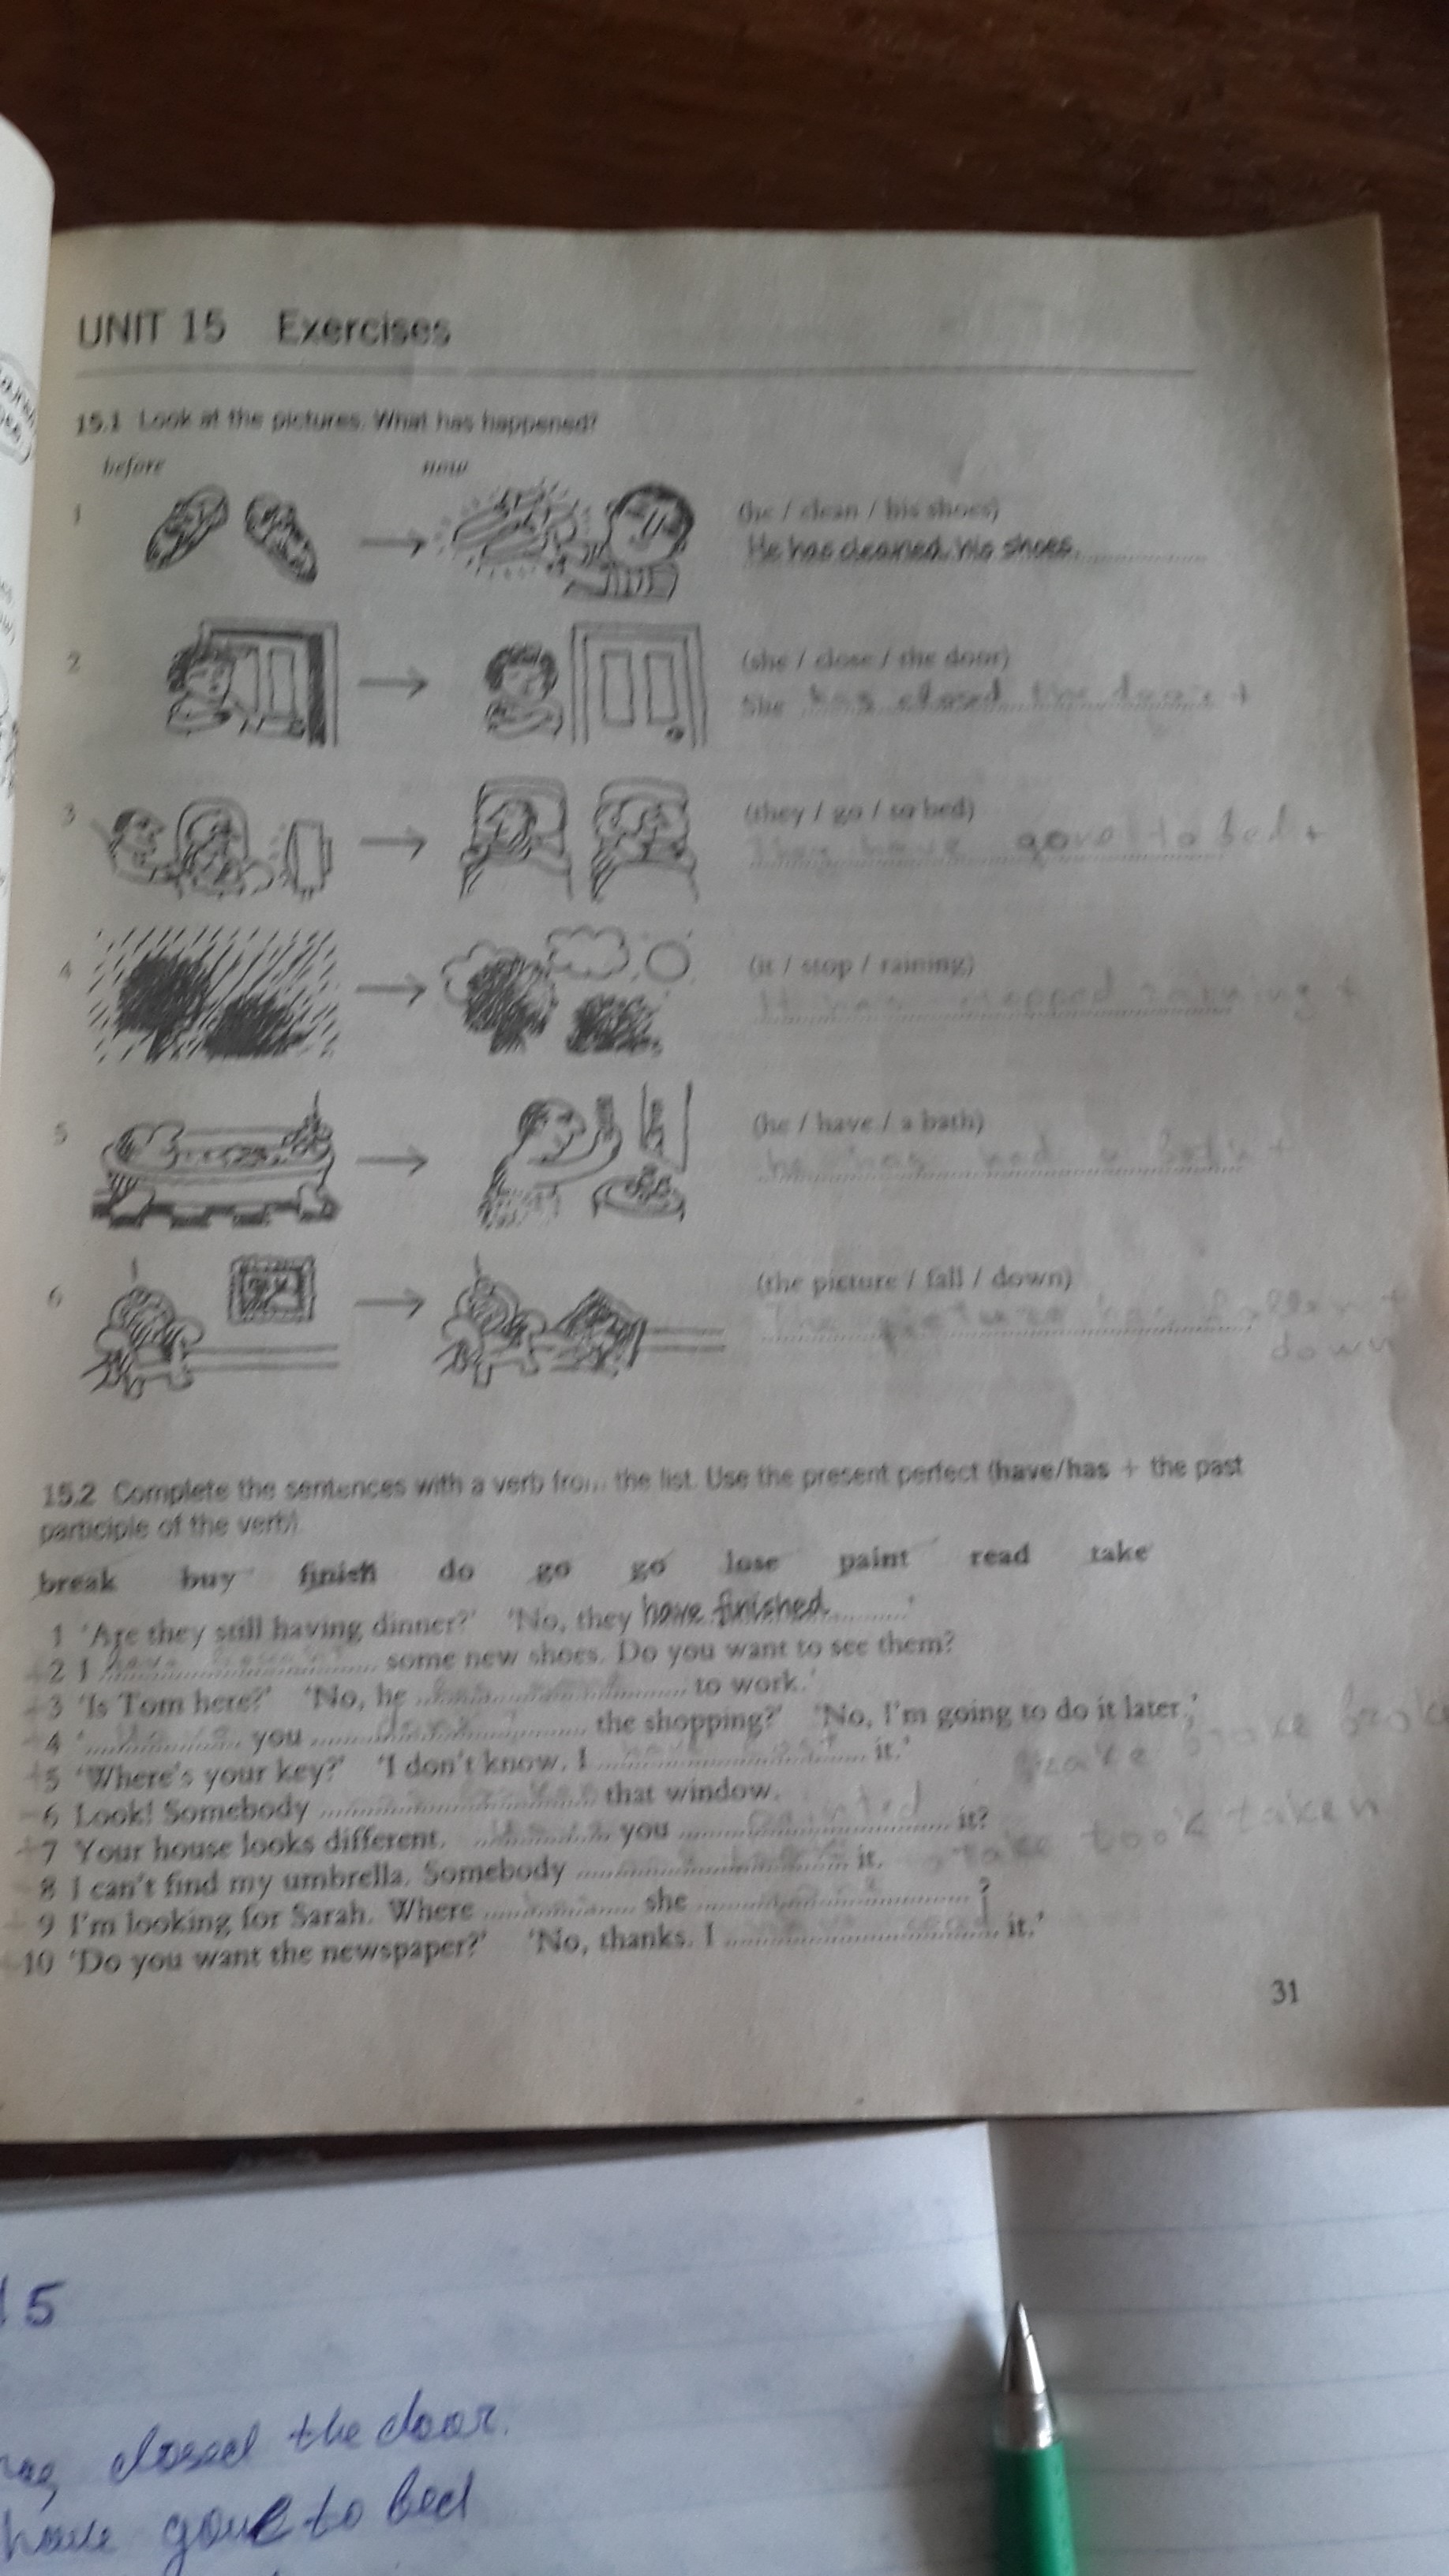 UNIT 15 Exercises
15.1 Look at the pictures. What has happened?
before now
1 (he / clean / his shoes)
He has cleaned his shoes.
2 (she / close / the door)
She has closed the door +
3 (they / go / to bed)
They have gone to bed +
4 (it / stop / raining)
It has stopped raining +
5 (he / have / a bath)
he has had a bath +
6 (the picture / fall / down)
The picture has fallen +
down
15.2 Complete the sentences with a verb from the list. Use the present perfect (have/has + the past
participle of the verb)
break buy finish do go go lose paint read take
1 'Are they still having dinner?' 'No, they have finished.'
2 I have some new shoes. Do you want to see them?
3 'Is Tom here?' 'No, he to work.'
4 ' you the shopping?' 'No, I'm going to do it later.'
5 'Where's your key?' 'I don't know. I it.'
6 Look! Somebody that window.
7 Your house looks different. you painted it?
8 I can't find my umbrella. Somebody it.
take took taken
9 I'm looking for Sarah. Where she ?
10 'Do you want the newspaper?' 'No, thanks. I have read it.'
31
15
closed the door.
have gone to bed